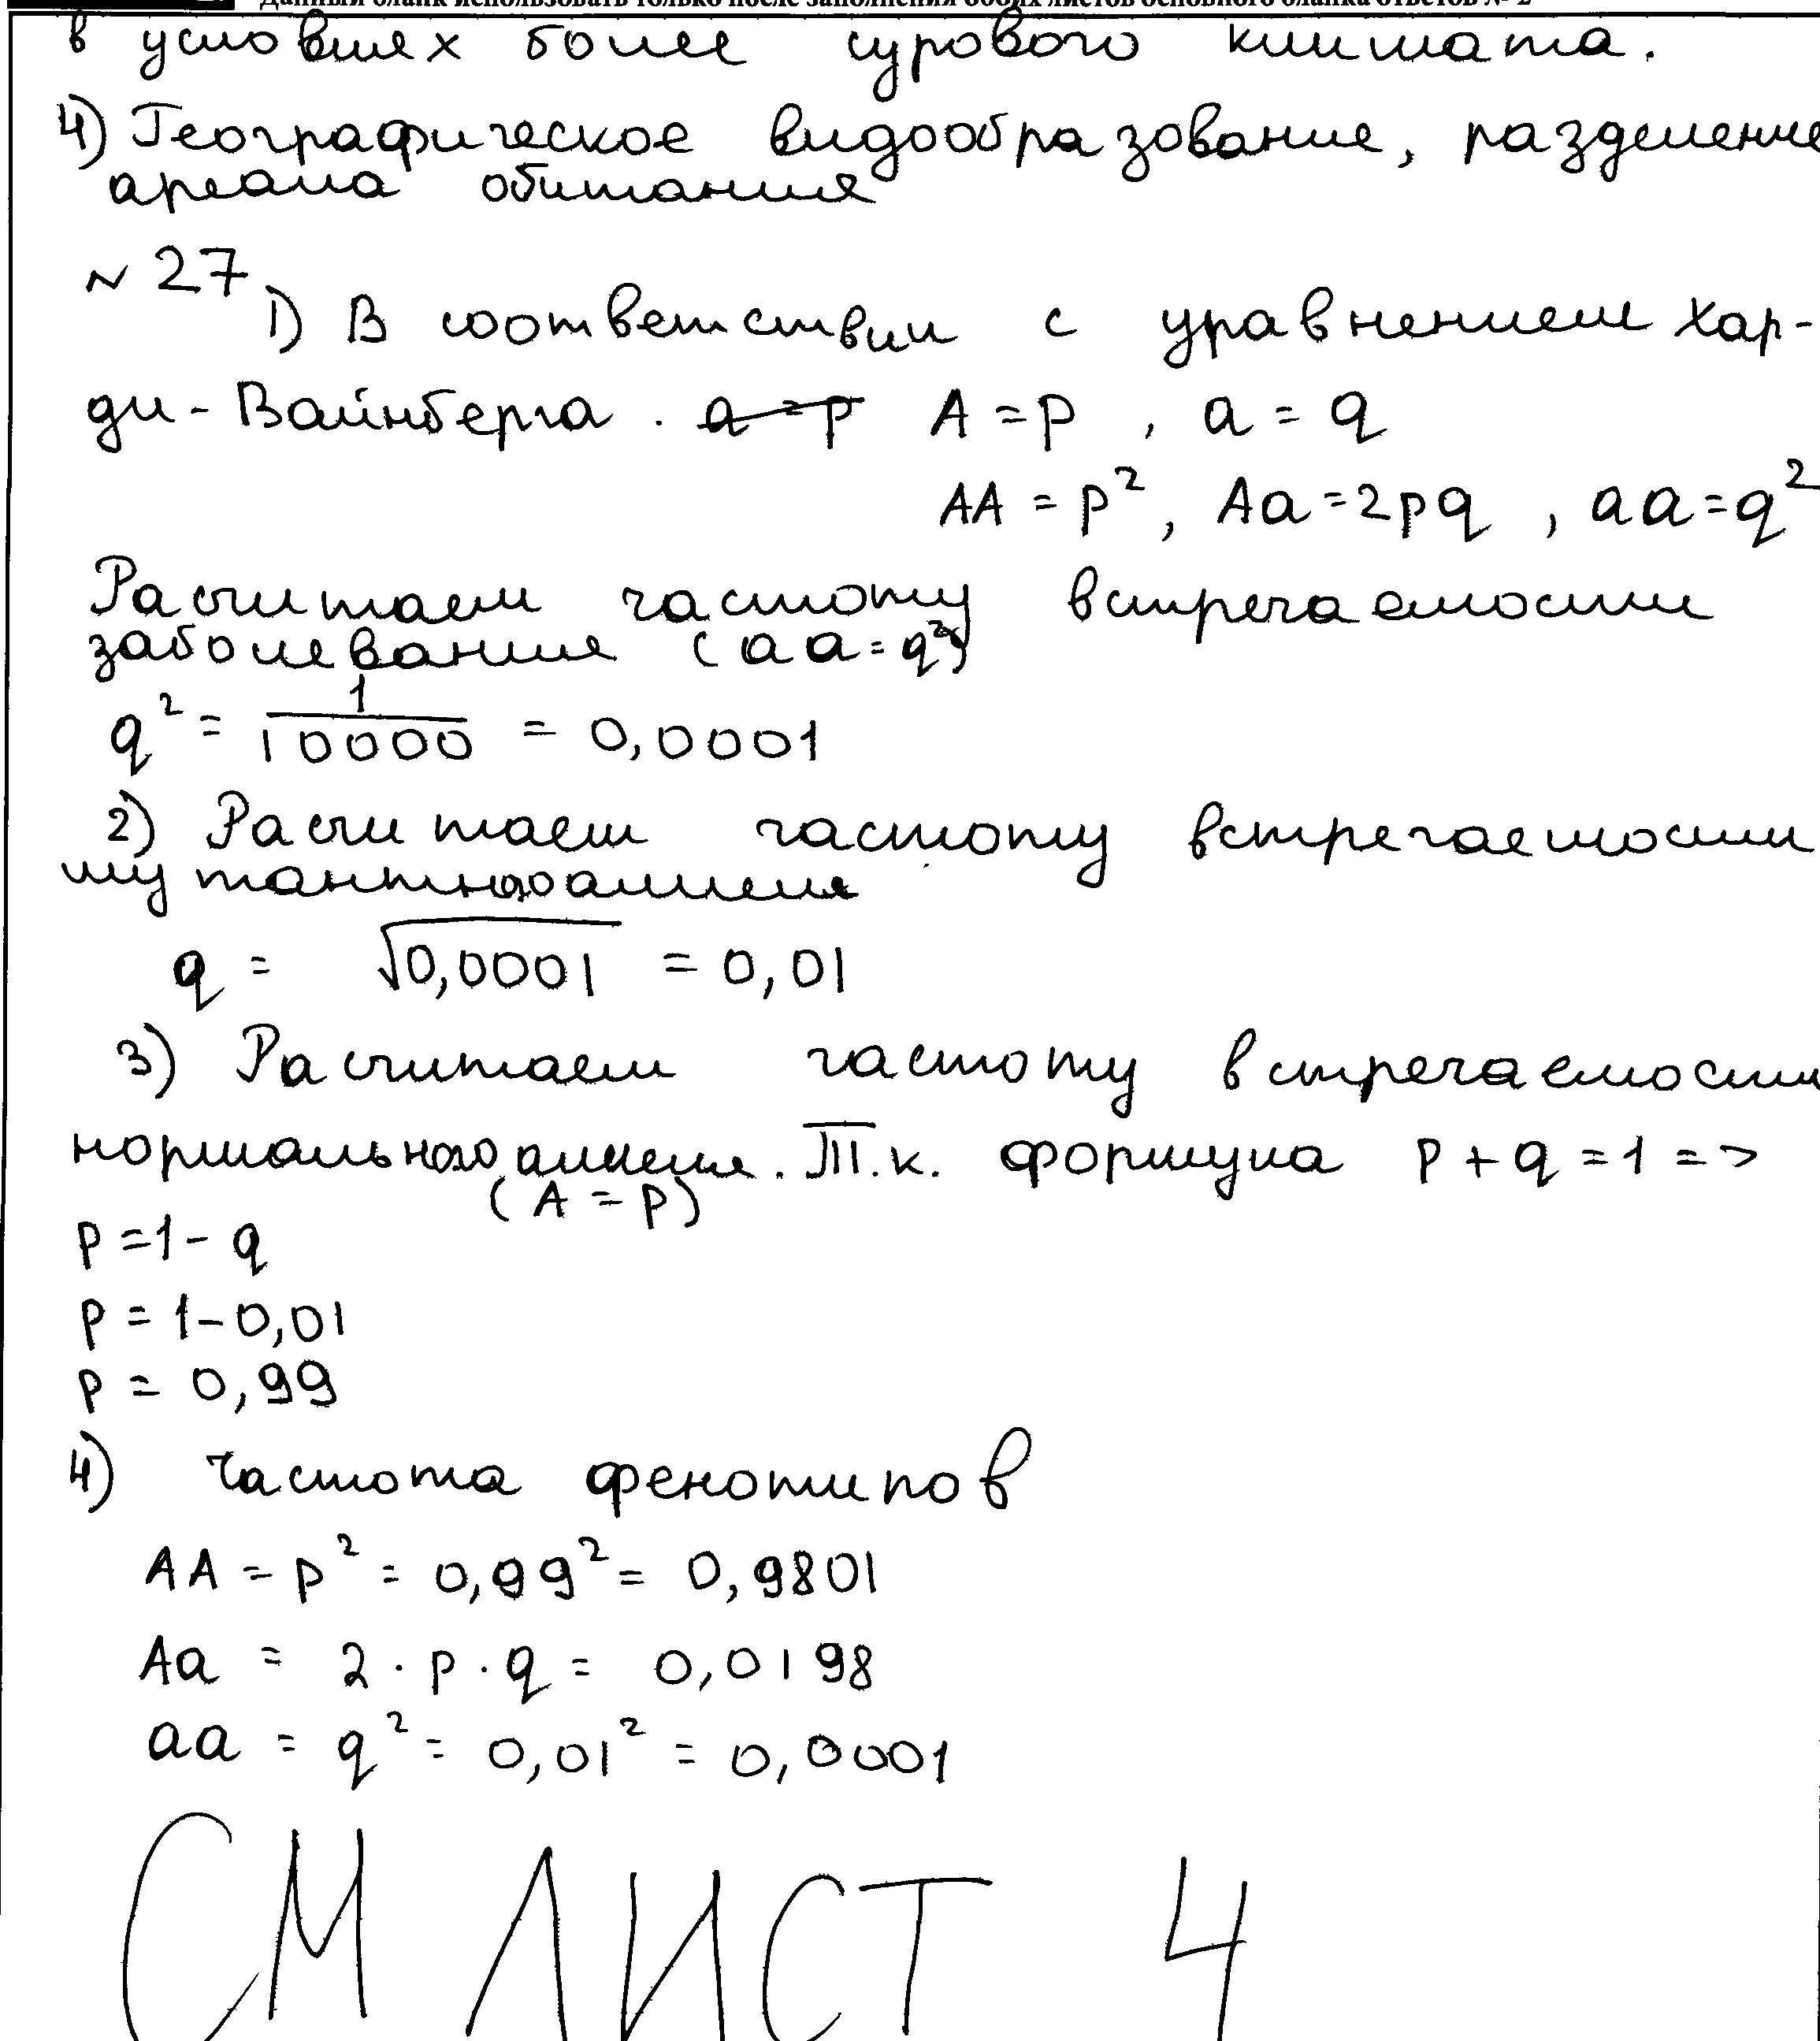 Данный бланк использовать только после заполнения обоих листов основного бланка ответов № 2
в условиях более сурового климата.
4) Географическое видообразование, разделение
ареала обитания
№ 27
1) В соответствии с уравнением Хар-
ди-Вайнберга. a = p A = p , a = q
AA = p², Aa = 2pq , aa = q²
Расчитаем частоту встречаемости
заболевания (aa = q²)
q² = 1/10000 = 0,0001
2) Расчитаем частоту встречаемости
мутантного аллеля
q = √0,0001 = 0,01
3) Расчитаем частоту встречаемости
нормального аллеля. Т.к. формула p + q = 1 =>
(A = p)
p = 1 - q
p = 1 - 0,01
p = 0,99
4) Частота фенотипов
AA = p² = 0,99² = 0,9801
Aa = 2 · p · q = 0,0198
aa = q² = 0,01² = 0,0001
СМ ЛИСТ 4